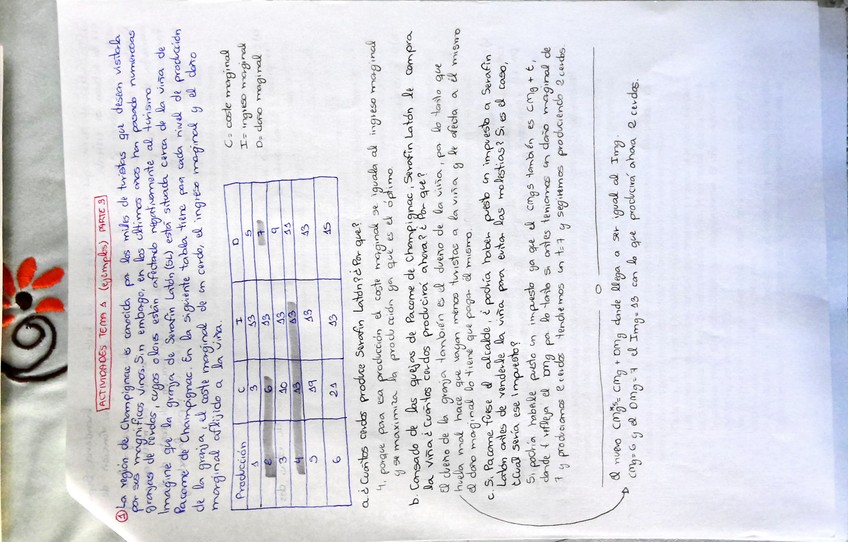 ACTIVIDADES TEMA 1 (ejemplos) PARTE 3
① La región de Champignac es conocida por los miles de turistas que desean visitarla
por sus magníficos vinos. Sin embargo, en los últimos años han pasado numerosas
granjas de cerdos, cuyos olores están afectando negativamente al turismo.
Imagine que la granja de Serafín Latón (SL) está situada cerca de la viña de
Pacome de Champignac. En la siguiente tabla tiene para cada nivel de producción
de la granja, el coste marginal de un cerdo, el ingreso marginal y el daño
marginal aflijido a la viña.
Producción C I D
1 3 13 5
2 6 13 7
3 10 13 9
4 13 13 11
5 19 13 13
6 21 13 15
C = coste marginal
I = ingreso marginal
D = daño marginal
a. ¿Cuántos cerdos produce Serafín Latón? ¿Por qué?
4, porque para esa producción el coste marginal se iguala al ingreso marginal
y se maximiza la producción ya que es el óptimo
b. Cansado de las quejas de Pacome de Champignac, Serafín Latón le compra
la viña ¿Cuántos cerdos producirá ahora? ¿Por qué?
El dueño de la granja también es el dueño de la viña, por lo tanto que
huela mal hace que vayan menos turistas a la viña y le afecta a él mismo
el daño marginal lo tiene que pagar él mismo.
c. Si Pacome fuese el alcalde, ¿podría haber puesto un impuesto a Serafín
Latón antes de venderle la viña para evitar las molestias? Si es el caso,
¿Cuál sería ese impuesto?
Si podría haberle puesto un impuesto ya que el CMgS también es CMg + t,
donde t refleja el DMg por lo tanto si antes teníamos un daño marginal de
7 y producíamos 2 cerdos tendremos un t=7 y seguiremos produciendo 2 cerdos
El nuevo CMgS = CMg + DMg donde llega a ser igual al IMg.
CMg=6 y el DMg=7 el IMg=13 con lo que producirá ahora 2 cerdos.